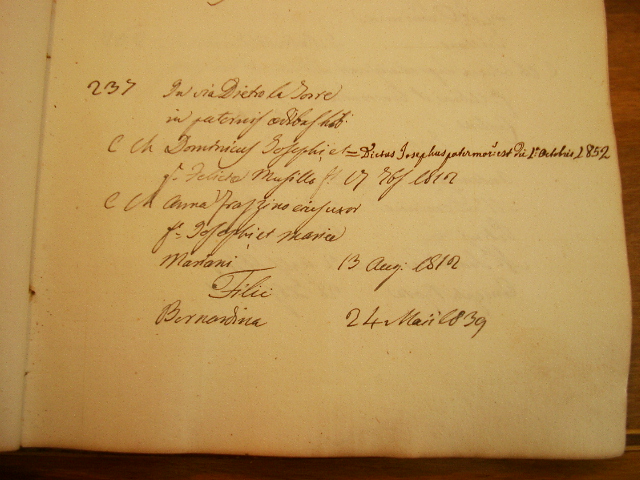 237 In via Dietro la Torre
in paternis ædibus hab:
C Ch Dominicus Josephi, et = Dictus Josephus pater mort: est die 1º Octobris 1852
fs Felicita Musillo fs 17 1812
C Ch Anna Frazzino eius uxor
fa Josephi, et Mariæ
Mariani 13 Aug: 1812
Filii
Bernardina 24 Maii 1839